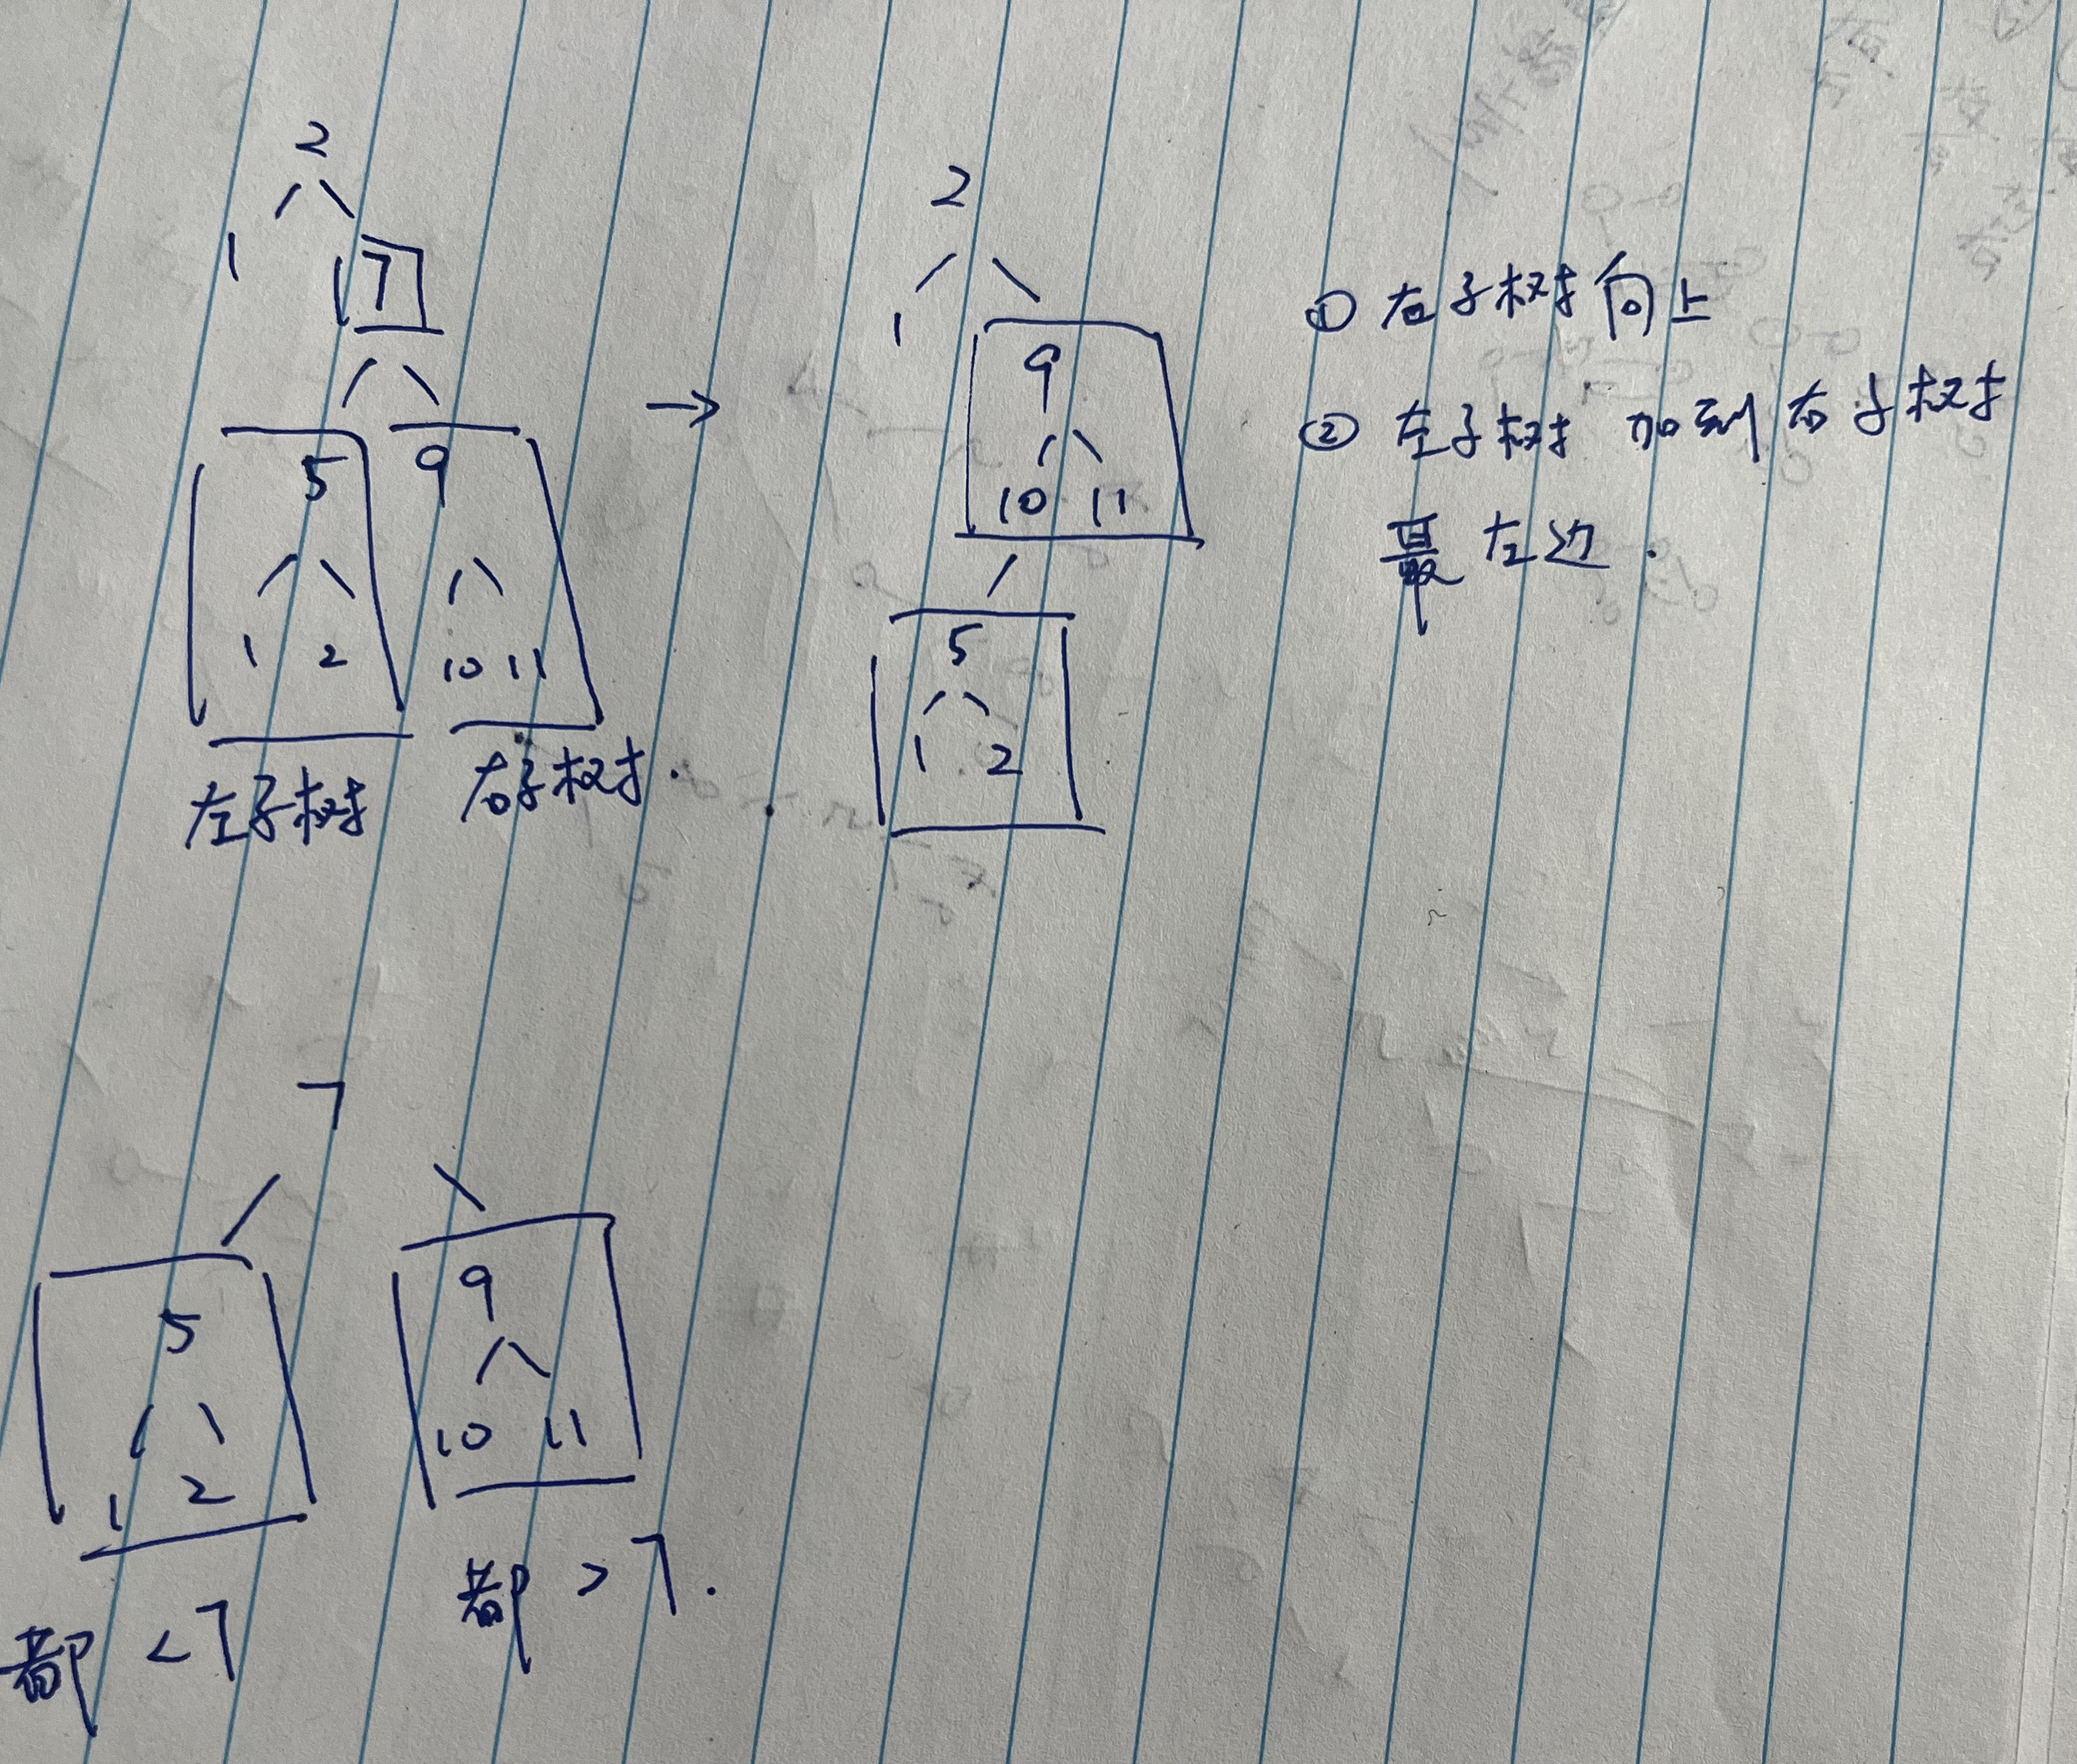 2
1 7
5 9
1 2 10 11
左子树 右子树.
→
2
1 9
10 11
5
1 2
① 右子树向上
② 左子树 加到右子树
最左边.
7
5 9
1 2 10 11
都 <7 都 >7.